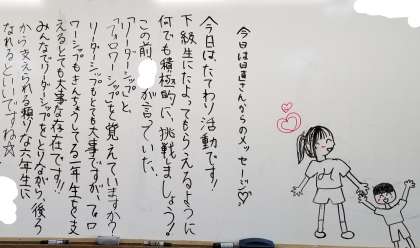 今日は日直さんからのメッセージ♡
今日は、たてわり活動です!!
下級生にたよってもらえるように
何でも積極的に、挑戦しましょう!
この前 が言っていた、
「リーダーシップ」と、
「フォロワーシップ」を覚えていますか?
リーダーシップもとても大事ですが、フォロ
ワーシップもきんちょうしてる一年生を支
えるとても大事な存在です!!!
みんなでリーダーシップをとりながら、後ろ
から支えられる頼りになる六年生に
なれるといいですね☆